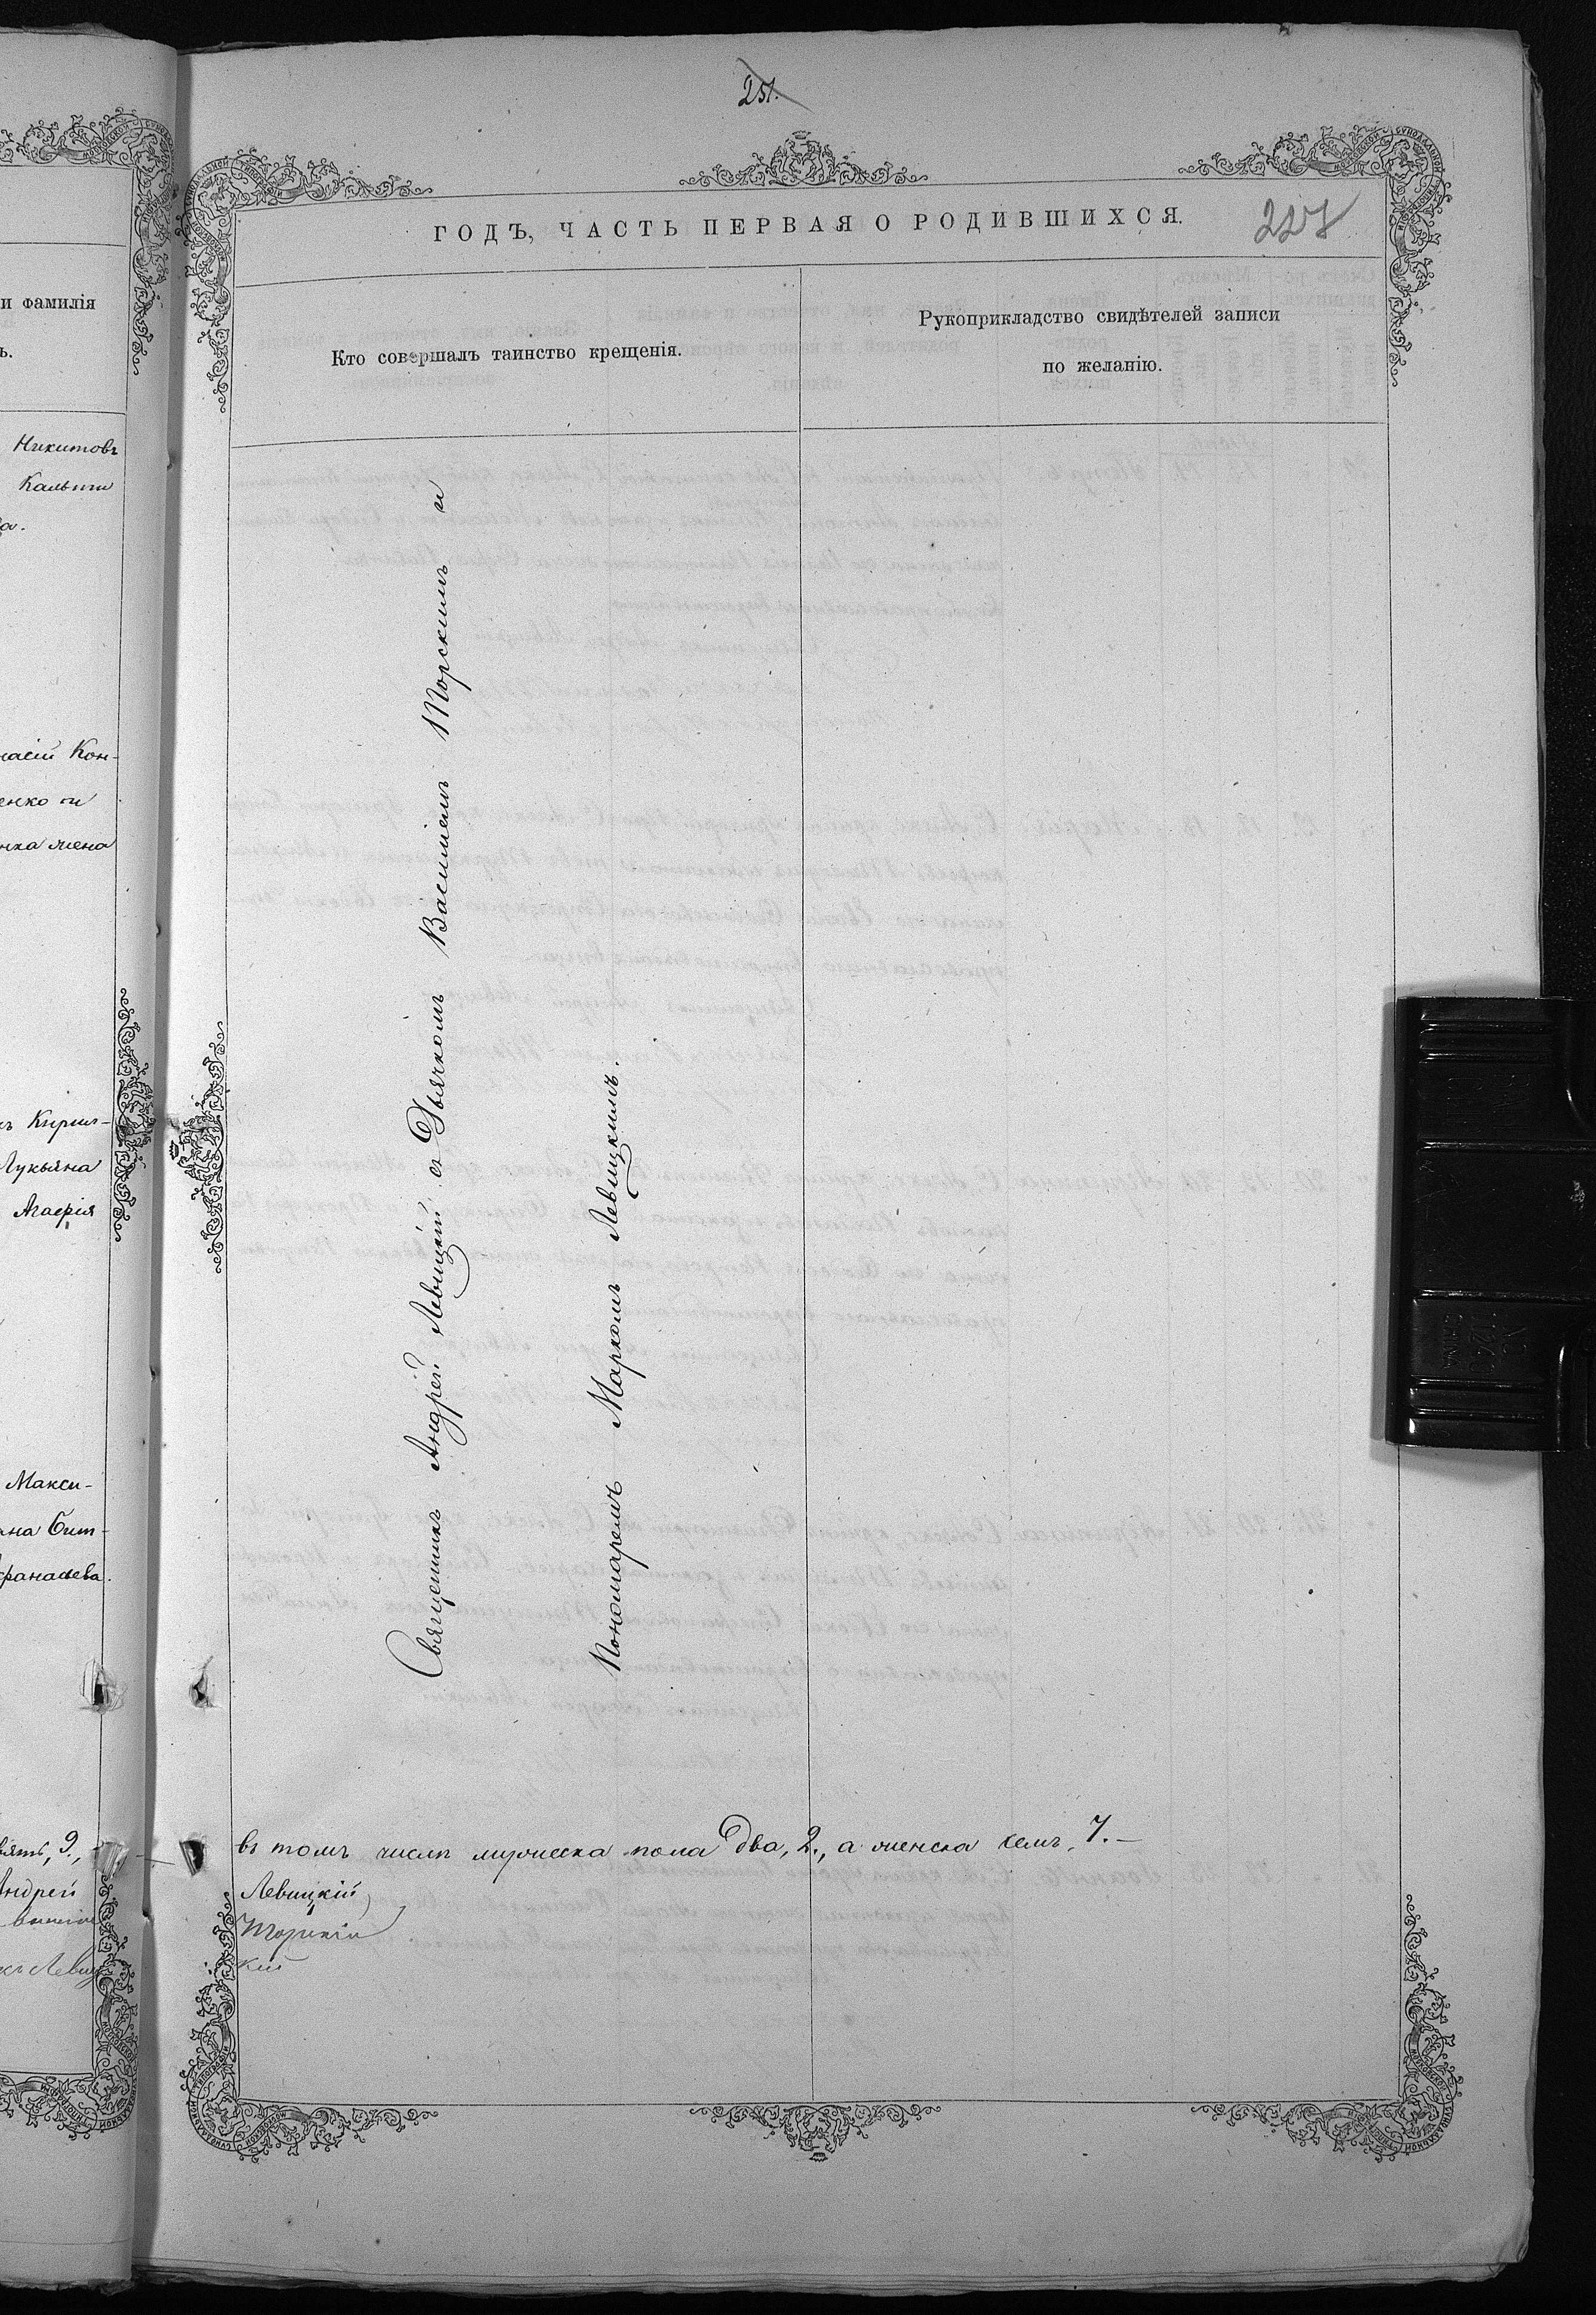 251.
227
ГОДЪ, ЧАСТЬ ПЕРВАЯ О РОДИВШИХСЯ.
и фамилія
ь.
Кто совершалъ таинство крещенія.
Рукоприкладство свидѣтелей записи
по желанію.
Никитовъ
а.
насій Кон-
енко и
нка жена
ъ Кирил-
Лукьяна
Агафія
Макси-
ана Бит-
фанасьева.
Священникъ Андрей Левицкій съ Дьячкомъ Василіемъ Торскимъ и
Пономаремъ Маркомъ Левицкимъ.
вять, 9.,
въ томъ числѣ мужеска пола два, 2., а женска семь, 7.—
Андрей
Левицкій
Торскій
къ Левиц
кій